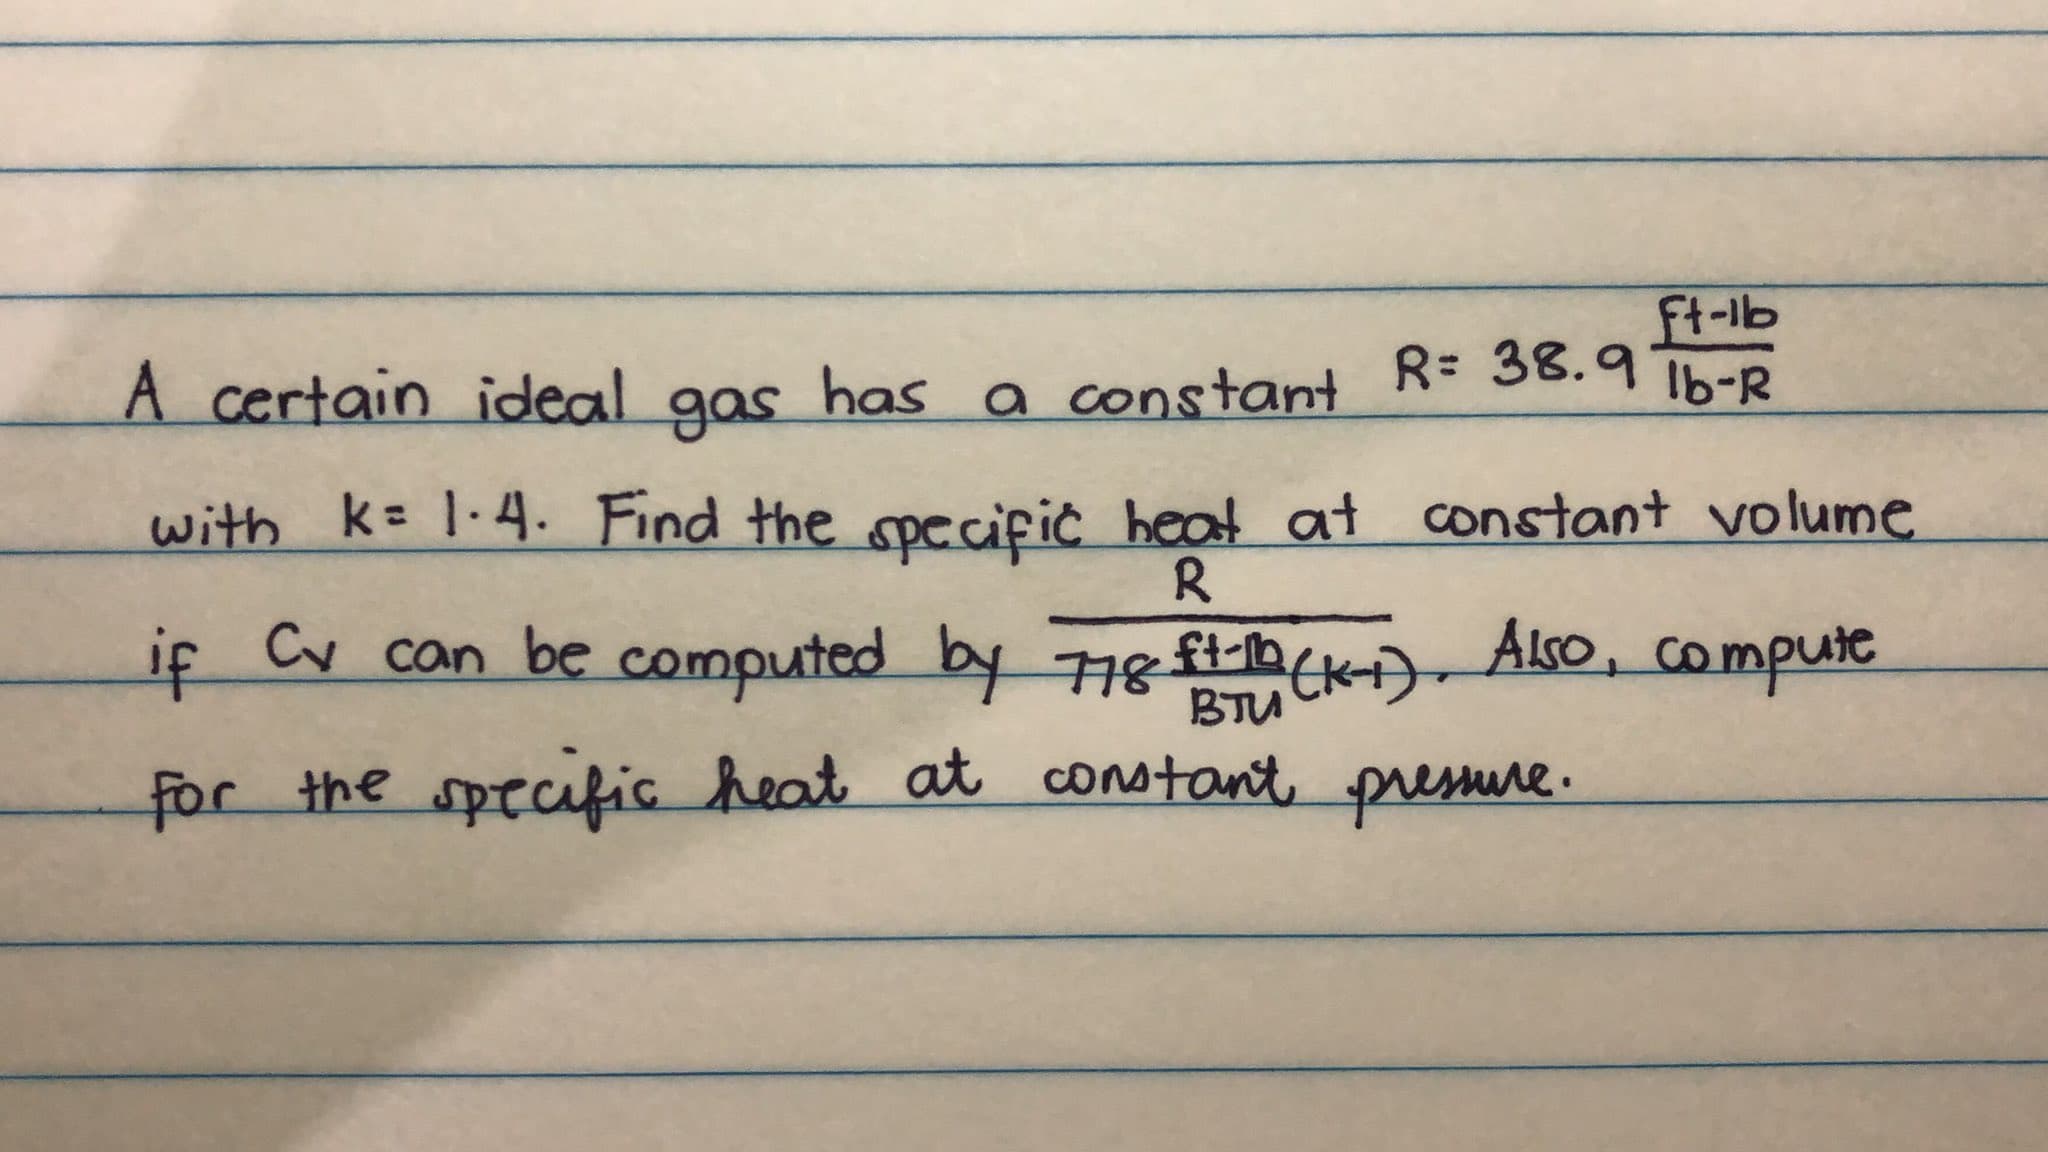 A certain ideal gas has a constant R= 38.9 ft-lb/lb-R
with k= 1.4. Find the specific heat at constant volume
if Cv can be computed by R/778 ft-lb/BTU (k-1). Also, compute
for the specific heat at constant pressure.